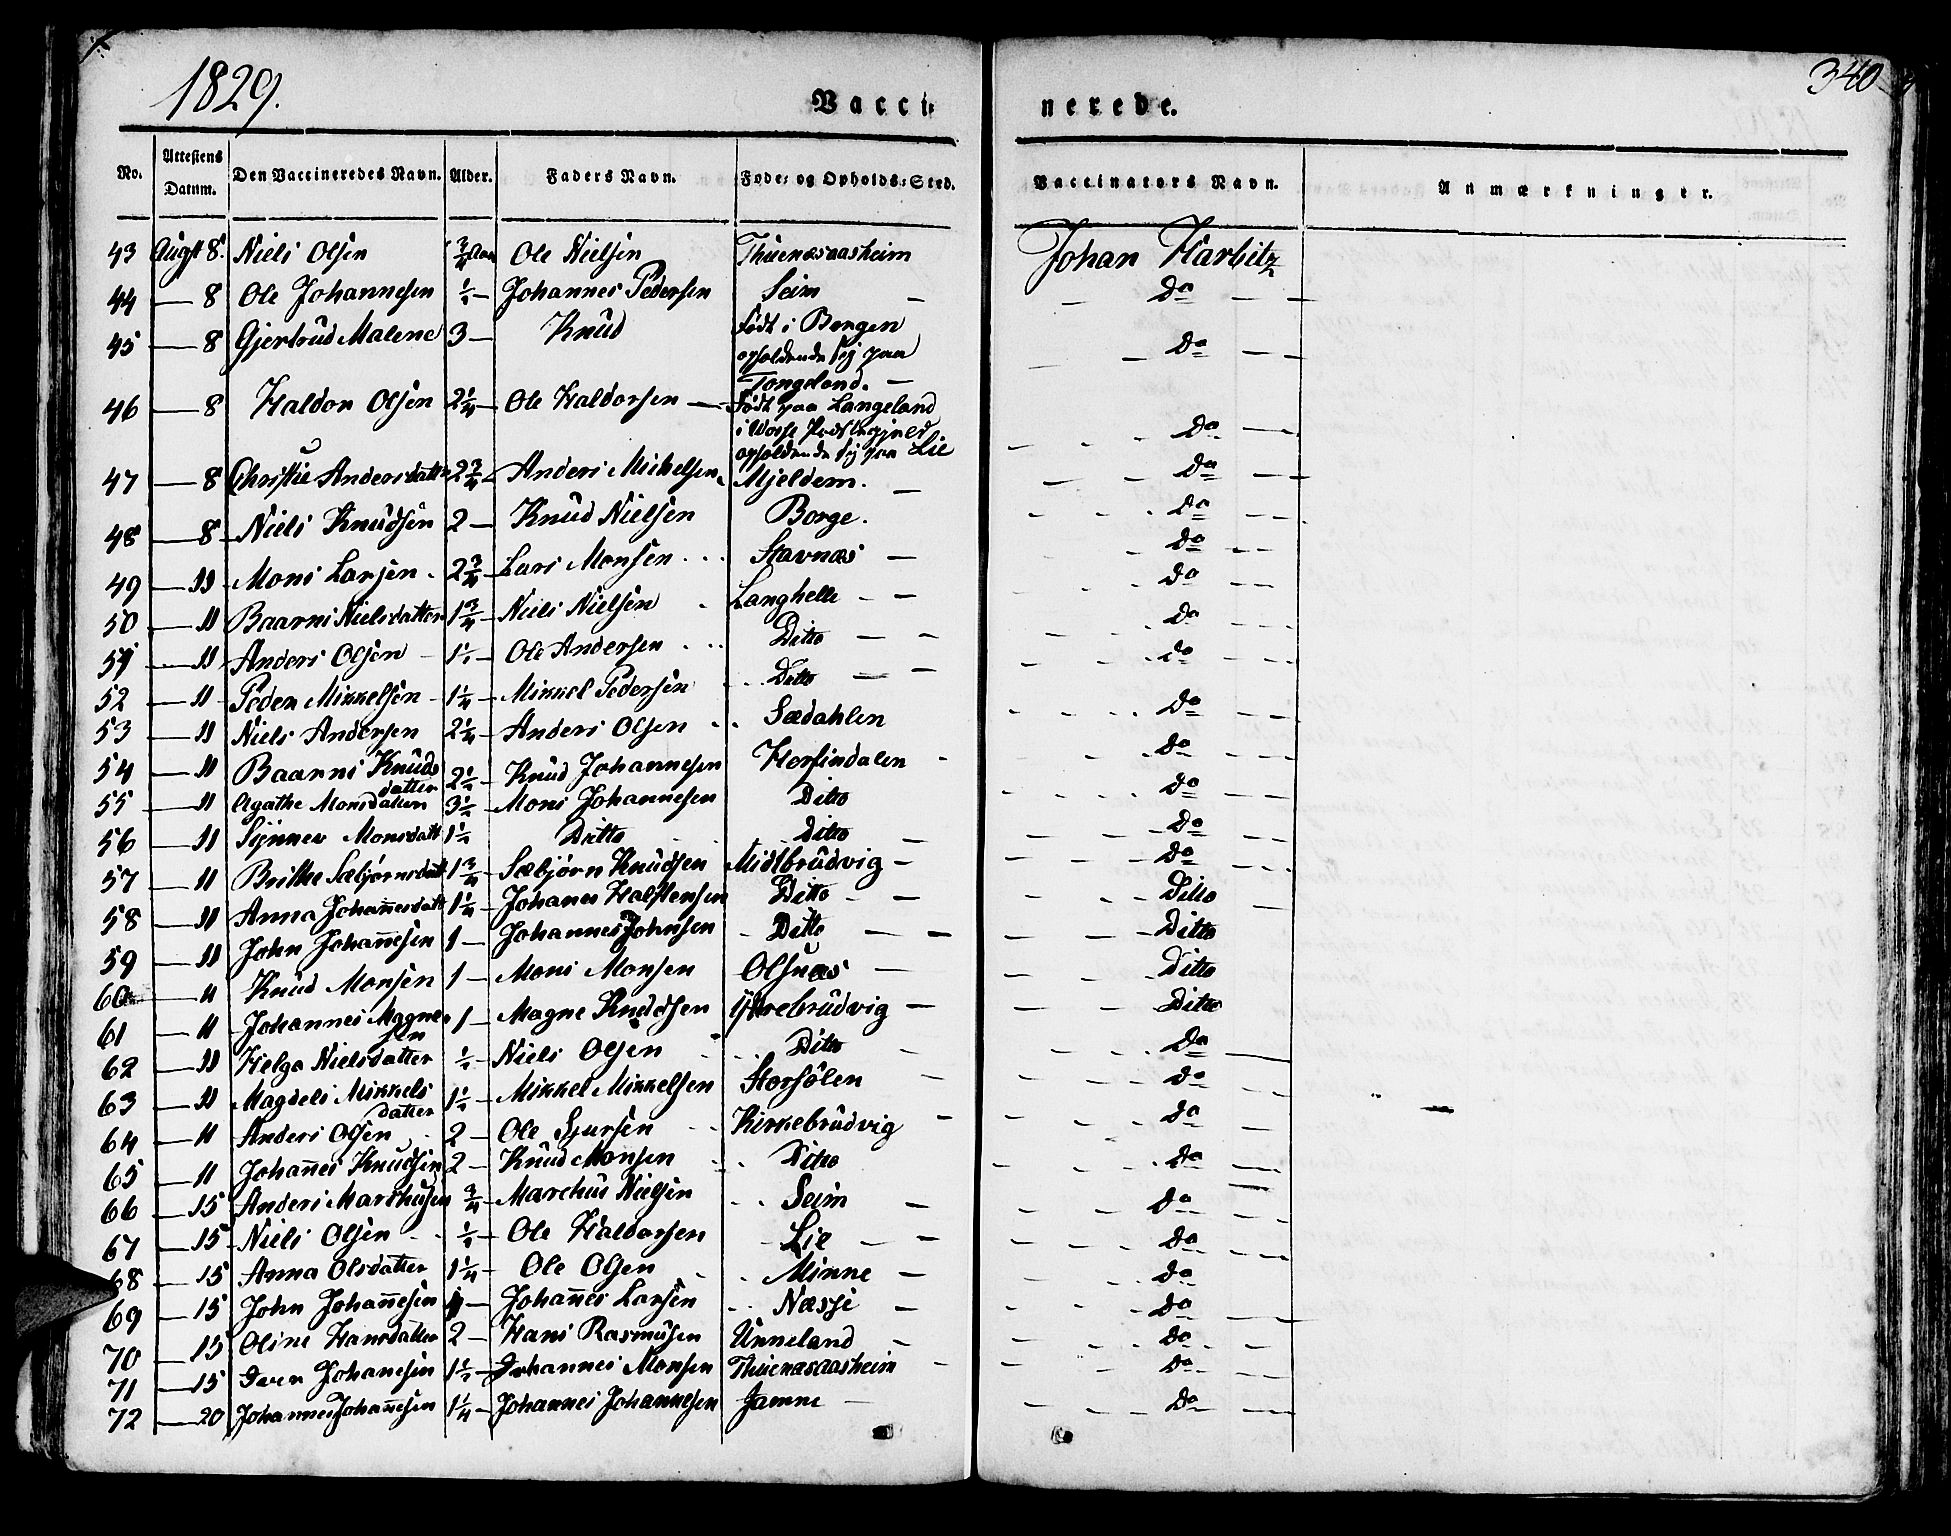 1829.
340
Vacci=
nerede.
No. Attestens Datum. Den Vaccineredes Navn. Alder. Faders Navn. Føde= og Opholds=Sted. Vaccinators Navn. Anmærkninger.
43 Augst 8. Niels Olsen 3/4 Aar Ole Nielsen Thuenæsaasheim Johan Harbitz
44 — 8 Ole Johannesen 1/2 — Johannes Pedersen Seim — Do
45 — 8 Gjertrud Malene 3 — Knud Født i Bergen
opholdende sig paa
Tongeland. — Do
46 — 8 Haldor Olsen 2 1/4 — Ole Haldorsen — Født paa Langeland
i Wosse Præstegjeld
opholdende sig paa Lie Do
47 — 8 Christie Andersdatter 2 3/4 Anders Mickelsen Mjeldem. — Do
48 — 8 Niels Knudsen 2 — Knud Nielsen Borge. Do
49 — 11 Mons Larsen 2 3/4 — Lars Monsen Stavnæs — Do
50 — 11 Baarni Nielsdatter 1 3/4 — Niels Nielsen Langhelle — Do
51 — 11 Anders Olsen 1 1/2 — Ole Andersen Ditto — Do
52 — 11 Peder Mikkelsen 1 1/4 — Mikkel Pedersen Ditto — Do
53 — 11 Niels Andersen 2 1/4 — Anders Olsen Sædahlen Do
54 — 11 Baarni Knuds
datter 2 1/2 — Knud Johannesen Horsindalen Do
55 — 11 Agathe Monsdatter 3 1/2 — Mons Johannesen Ditto Do
56 — 11 Synnev Monsdatt 1 1/2 Ditto Ditto — Do
57 — 11 Brithe Sæbjørnsdatt 1 3/4 — Sæbjørn Knudsen Midtbrudvig — Do
58 — 11 Anna Johan̄esdatt 1 1/4 — Johanes Halstensen Ditto — Ditto
59 — 11 John Johan̄esen 1 — Johannes Johnsen Ditto — Ditto
60 — 11 Knud Monsen 1 — Mons Monsen Olsnæs — Ditto
61 — 11 Johannes Magne=
sen 1 — Magne Knudsen Ystrebrudvig — Ditto
62 — 11 Helga Nielsdatter 1/2 — Niels Olsen Ditto Do
63 — 11 Magdeli Mikkels
datter 1 1/2 — Mikkel Mikkelsen Storsølen — Do
64 — 11 Anders Olsen 2 — Ole Sjursen Kirkebrudvig — Do
65 — 11 Johan̄es Knudsen 2 — Knud Monsen Ditto Do
66 — 15 Anders Marchusen 3/4 — Marchus Nielsen Seim — Do
67 — 15 Niels Olsen 1/2 — Ole Haldorsen Lie — Do
68 — 15 Anna Olsdatter 1 1/4 Ole Olsen Minne — Do
69 — 15 John Johan̄esen — Johan̄es Larsen Næsse — Do
70 — 15 Oline Hansdatter 2 — Hans Rasmusen Unneland — Do
71 — 15 Iver Johanesen 1 1/2 — Johannes Monsen Thuenæsaasheim — Do
72 — 20 Johannes Johan̄esen 1 1/4 — Johannes Johannesen Jamne — Do